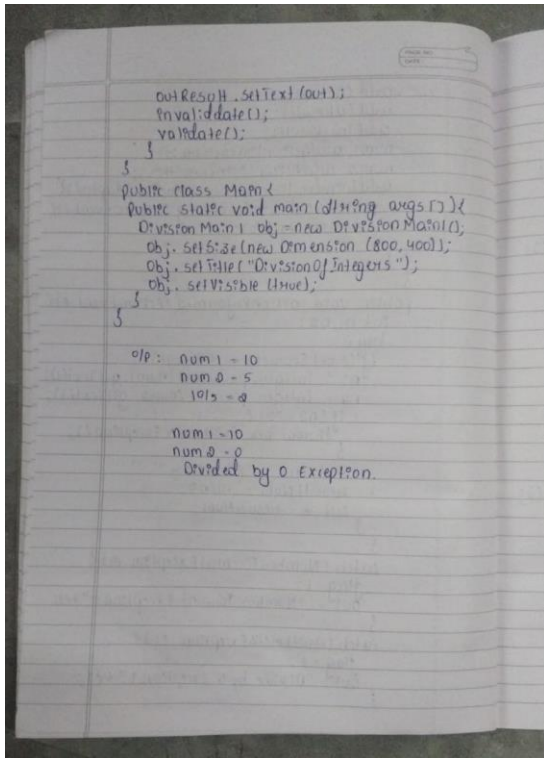 PAGE NO.
DATE
outResult.setText(out);
invaliddate();
validate();
}
}
public class Main{
public static void main(String args[]){
DivisionMain1 obj = new DivisionMain1();
obj.setSize(new Dimension (800,400));
obj.setTitle("DivisionOfIntegers");
obj.setVisible (true);
}
}
o/p: num1 = 10
num2 = 5
10/5 = 2
num1 = 10
num2 = 0
Divided by 0 Exception.